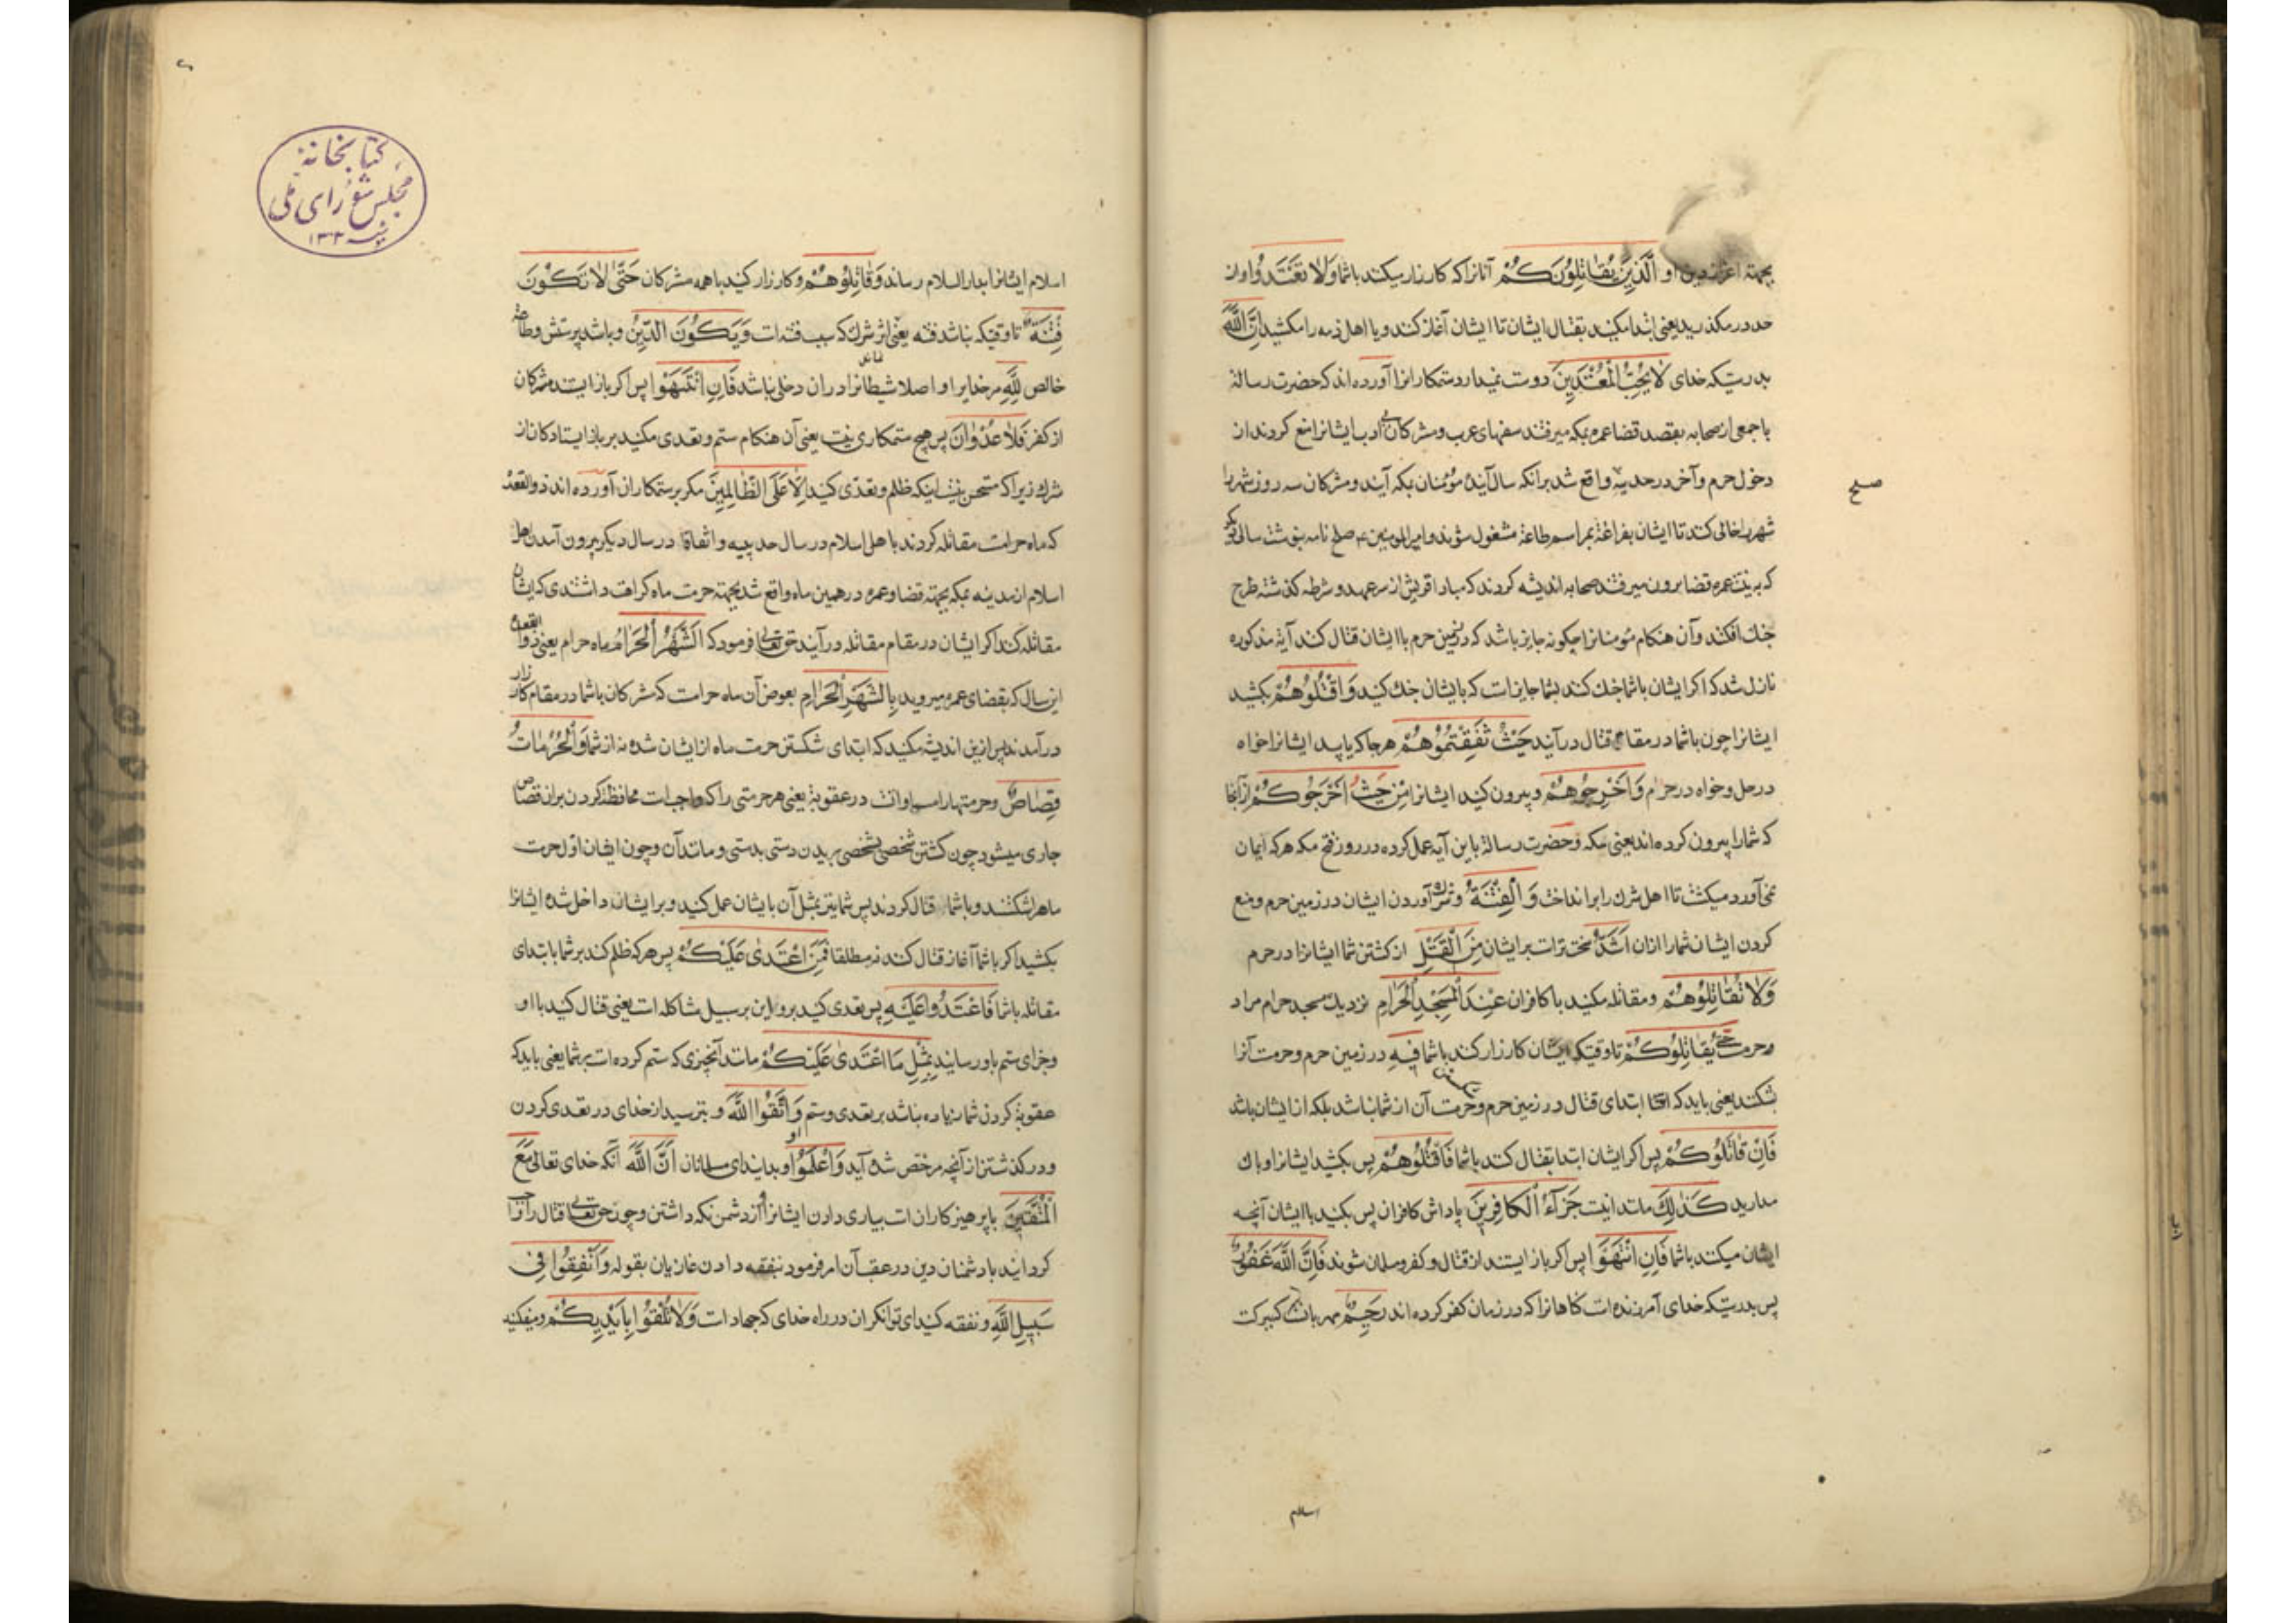 بجهته اعزاز دین او الَّذِینَ یُقَاتِلُونَکُمْ آنانرا که کارزار میکنند باشما وَلَا تَعْتَدُوا و از
حد درمکذرید یعنی ابتدا مکنید بقتال ایشان تا ایشان آغاز کنند و یا اهل ذمه را مکشید اِنَّ اللّٰهَ
بدرستیکه خدای لَا یُحِبُّ الْمُعْتَدِینَ دوست نمیدارد ستمکارانرا آورده اند که حضرت رسالة
با جمعی از صحابه بقصد قضا عمره بمکه میرفتند سفهای عرب و مشرکان بی ادب ایشانرا منع کردند از
دخول حرم و آخر در حدیبیه واقع شد برانکه سال آینده مؤمنان بمکه آیند و مشرکان سه روز شهر را
صلح
شهر را خالی کنند تا ایشان بفراغة بمراسم طاعة مشغول شوند و امیرالمومنین ع صلح نامه بنوشت سالی دیکر
که به نیت عمره قضا برون میرفتند صحابه اندیشه کردند که مبادا قریش از سر عهد و شرطه کذشته طرح
جنك افکنند و آن هنکام مؤمنانرا چکونه جایز باشد که در زمین حرم با ایشان قتال کنند آیه مذکوره
نازل شد که اکر ایشان باشما جنك کنند بشما جایزاست که با یشان جنك کنید وَاقْتُلُوهُمْ بکشید
ایشانرا چون باشما در مقام قتال درآیند حَیْثُ ثَقِفْتُمُوهُمْ هرجا که یابید ایشانرا خواه
در حل و خواه در حرام وَاَخْرِجُوهُمْ و بیرون کنید ایشانرا مِنْ حَیْثُ اَخْرَجُوکُمْ از آنجا
که شمارا بیرون کرده اند یعنی مکه و حضرت رسالة باین آیه عمل کرده در روز فتح مکه هرکه ایمان
نمی آورد میکشت تا اهل شرك را برانداخت وَالْفِتْنَةُ و شرك آوردن ایشان در زمین حرم و منع
کردن ایشان شمارا ازان اَشَدُّ سخت تراست برایشان مِنَ الْقَتْلِ از کشتن شما ایشانرا در حرم
وَلَا تُقَاتِلُوهُمْ و مقاتله مکنید با کافران عِنْدَ الْمَسْجِدِ الْحَرَامِ نزدیك مسجد حرام مراد
وحرمت حَتّٰی یُقَاتِلُوکُمْ تا وقتیکه ایشان کارزار کنند باشما فِیهِ در زمین حرم و حرمت آنرا
بشکنند یعنی باید که ابتدای قتال در زمین حرم و حرمت آن از شما نباشد بلکه از ایشان باشد
فَاِنْ قَاتَلُوکُمْ پس اکر ایشان ابتدا بقتال کنند باشما فَاقْتُلُوهُمْ پس بکشید ایشانرا و باك
مدارید کَذٰلِكَ مانند اینست جَزَآءُ الْکَافِرِینَ پاداش کافران پس بکنید با ایشان آنچه
ایشان میکنند باشما فَاِنِ انْتَهَوْا پس اکر باز ایستند از قتال و کفر و مسلمان شوند فَاِنَّ اللّٰهَ غَفُورٌ
پس بدرستیکه خدای آمرزنده است کناهانرا که در زمان کفر کرده اند رَحِیمٌ مهربان
اسلام
کتابخانهٔ
مجلس شورای ملی
۱۳۰۳
اسلام ایشانرا بدارالسلام رساند وَقَاتِلُوهُمْ و کارزار کنید با همه مشرکان حَتّٰی لَا تَکُونَ
فِتْنَةٌ تا وقتیکه نباشد فتنه یعنی اثر شرك که سبب فتنه است وَیَکُونَ الدِّینُ و باشد پرستش و طاعة
خالص لِلّٰهِ مر خدایرا و اصلا شیطانرا دران دخلی نباشد فَاِنِ انْتَهَوْا پس اکر باز ایستند مشرکان
از کفر فَلَا عُدْوَانَ پس هیچ ستمکاری نیست یعنی آن هنکام ستم و تعدی مکنید بر باز ایستادکان از
شرك زیرا که مستحق نیستند اینکه ظلم و تعدّی کنید اِلَّا عَلَی الظَّالِمِینَ مکر بر ستمکاران آورده اند ذو القعده
که ماه حرامست مقاتله کردند با هل اسلام در سال حدیبیه و اتفاقا در سال دیکر بیرون آمدن اهل
اسلام از مدینه بمکه بجهته قضاء عمره در همین ماه واقع شد بجهته حرمت ماه کراهت داشتندی که با ایشان
مقاتله کنند اکر ایشان در مقام مقاتله درآیند حق تعالی فرمود که اَلشَّهْرُ الْحَرَامُ ماه حرام یعنی ذو القعده
این سال که بقضای عمره میروید بِالشَّهْرِ الْحَرَامِ بعوض آن ماه حرامست که مشرکان باشما در مقام کارزار
درآمدند پس ازین اندیشه مکنید که ابتدای شکستن حرمت ماه از ایشان شده نه از شما وَالْحُرُمَاتُ
قِصَاصٌ و حرمتها را مساواتست در عقوبة یعنی هر حرمتی را که واجبست محافظة کردن بران قصاص
جاری میشود چون کشتن شخصی بشخصی بریدن دستی بدستی و مانند آن و چون ایشان اول حرمت
ماه را شکستند و باشما قتال کردند پس شما نیز بمثل آن با یشان عمل کنید و برایشان داخل شده ایشانرا
بکشید اکر باشما آغاز قتال کنند نه مطلقا فَمَنِ اعْتَدٰی عَلَیْکُمْ پس هرکه ظلم کند بر شما بابتدای
مقاتله باشما فَاعْتَدُوا عَلَیْهِ پس تعدی کنید برو این بر سبیل مشاکله است یعنی قتال کنید با او
و جزای ستم باو رسانید بِمِثْلِ مَا اعْتَدٰی عَلَیْکُمْ مانند آنچیزی که ستم کرده است بر شما یعنی باید که
عقوبة کردن شما زیاده نباشد بر تعدی و ستم وَاتَّقُوا اللّٰهَ و بترسید از خدای در تعدی کردن
و درکذشتن از آنچه مرخص شده آید وَاعْلَمُوا و بدانید ای مسلمانان اَنَّ اللّٰهَ آنکه خدای تعالی مَعَ
الْمُتَّقِینَ با پرهیزکاران است بیاری دادن ایشانرا و از دشمن نکه داشتن و چون حق تعالی قتال را
کردانید با دشمنان دین در عقب آن امر فرمود بنفقه دادن غازیان بقوله وَاَنْفِقُوا فِی
سَبِیلِ اللّٰهِ و نفقه کنید ای توانکران در راه خدای که جهاد است وَلَا تُلْقُوا بِاَیْدِیکُمْ و میفکنید